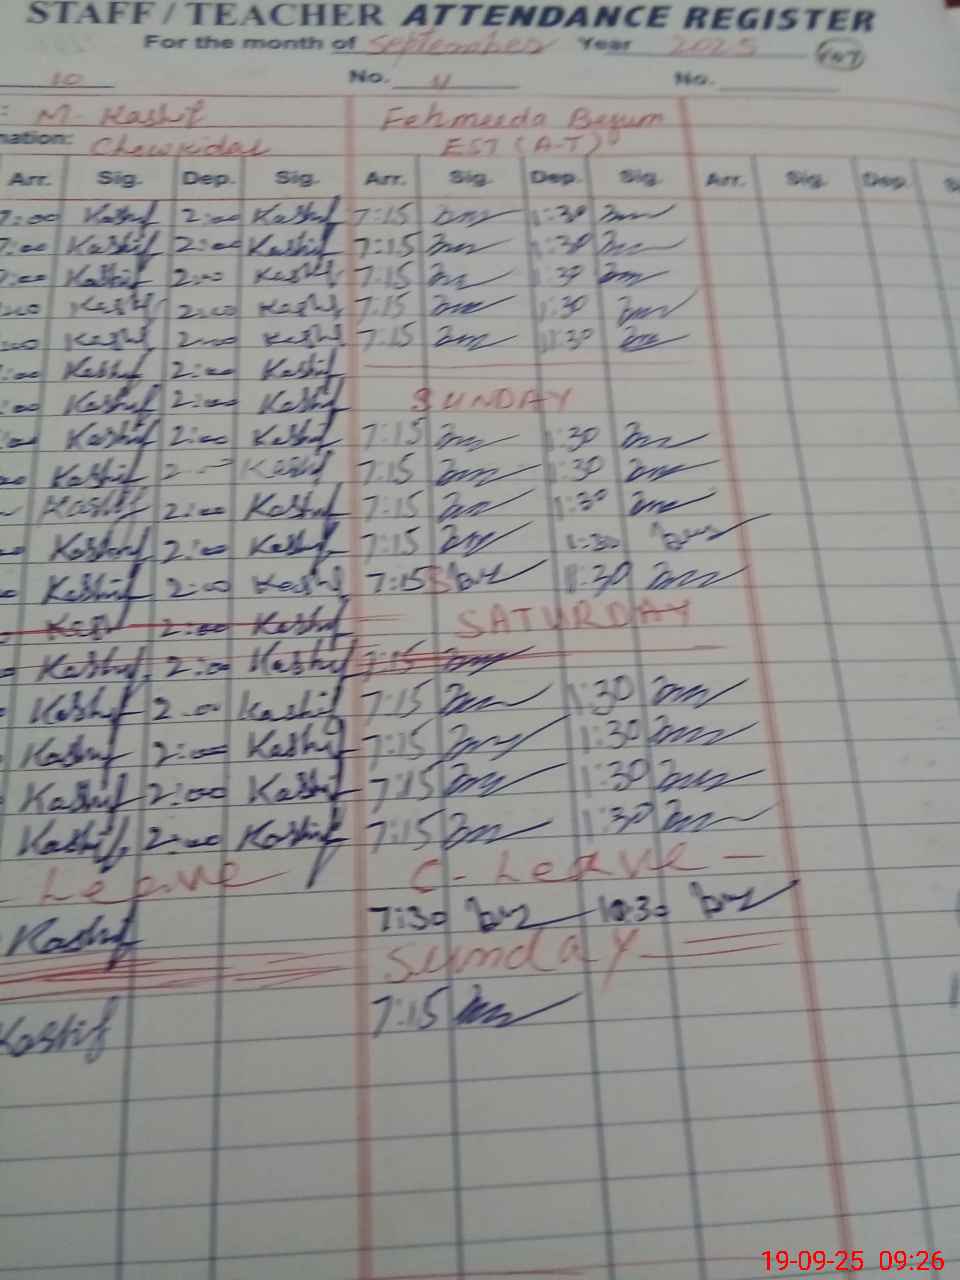 STAFF / TEACHER ATTENDANCE REGISTER
For the month of September Year 2025
10 No. 11 No.
: M. Kashif Fehmeeda Begum
nation: Chowkidar EST (A-T)
Arr. Sig. Dep. Sig. Arr. Sig. Dep. Sig. Arr. Sig. Dep. S
7:00 Kashif 2:00 Kashif 7:15 1:30
7:00 Kashif 2:00 Kashif 7:15 1:30
7:00 Kashif 2:00 Kashif 7:15 1:30
:00 Kashif 2:00 Kashif 7:15 1:30
:00 Kashif 2:00 Kashif 7:15 1:30
:00 Kashif 2:00 Kashif
:00 Kashif 2:00 Kashif SUNDAY
:00 Kashif 2:00 Kashif 7:15 1:30
00 Kashif 2 Kashif 7:15 1:30
Kashif 2:00 Kashif 7:15 1:30
Kashif 2:00 Kashif 7:15 1:30
Kashif 2:00 Kashif 7:15 1:30
Kashif 2:00 Kashif SATURDAY
Kashif 2:00 Kashif 7:15
Kashif 2:00 Kashif 7:15 1:30
Kashif 2:00 Kashif 7:15 1:30
Kashif 2:00 Kashif 7:15 1:30
Kashif 2:00 Kashif 7:15 1:30
Leave C- Leave -
Kashif 7:30 10:30
Sunday
Kashif 7:15
19-09-25 09:26